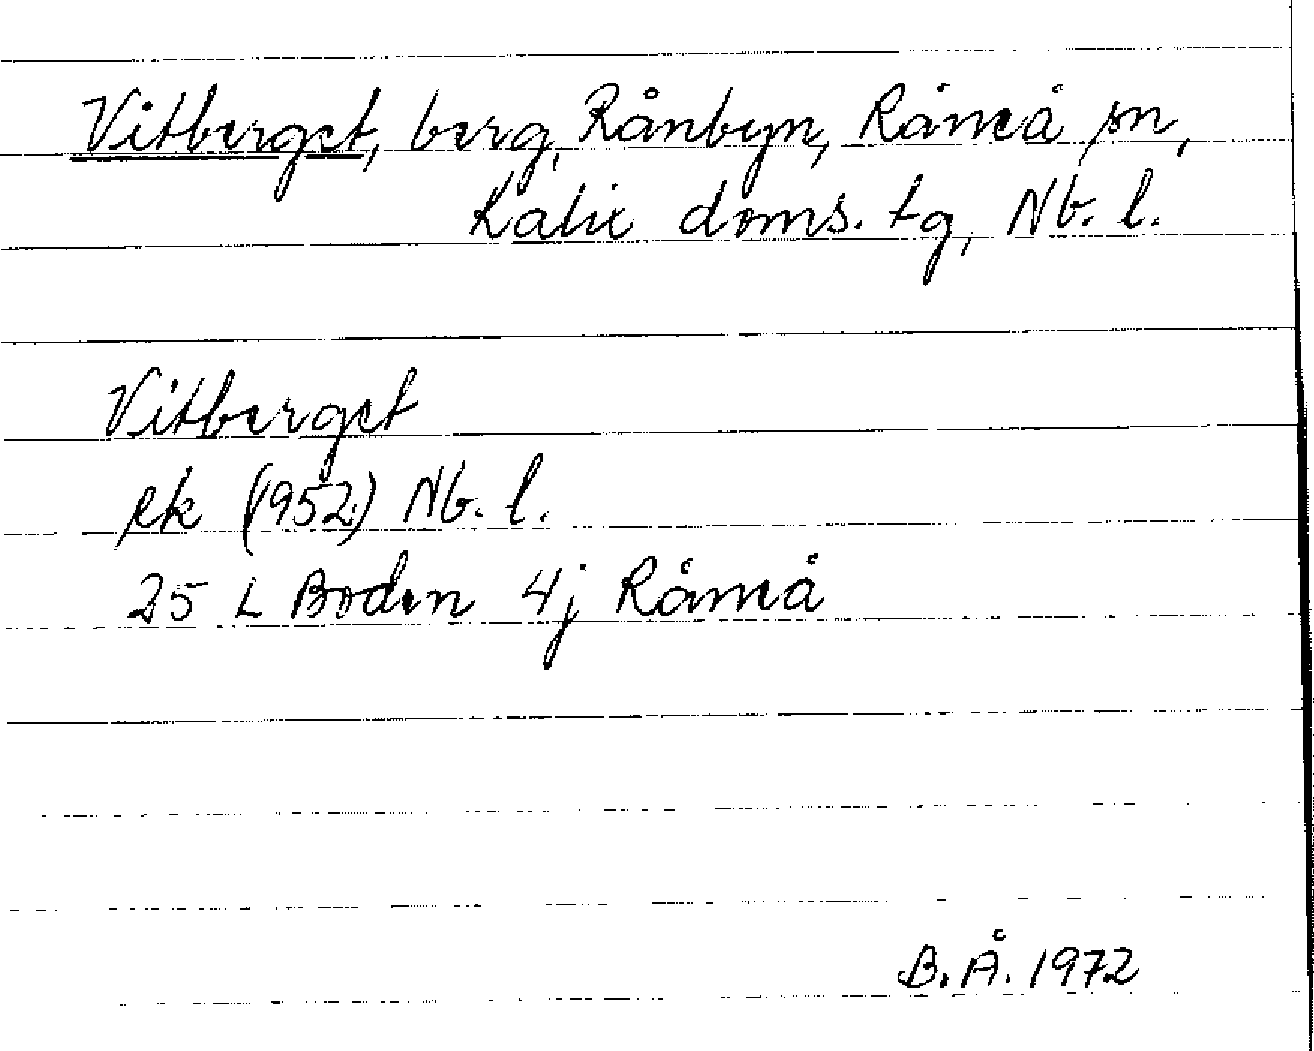 Vitberget, berg, Rånbyn, Råneå sn,
Kalix doms. tg, Nb. l.
Vitberget
ek (1952) Nb. l.
25 L Boden 4j Råneå
B. Å. 1972